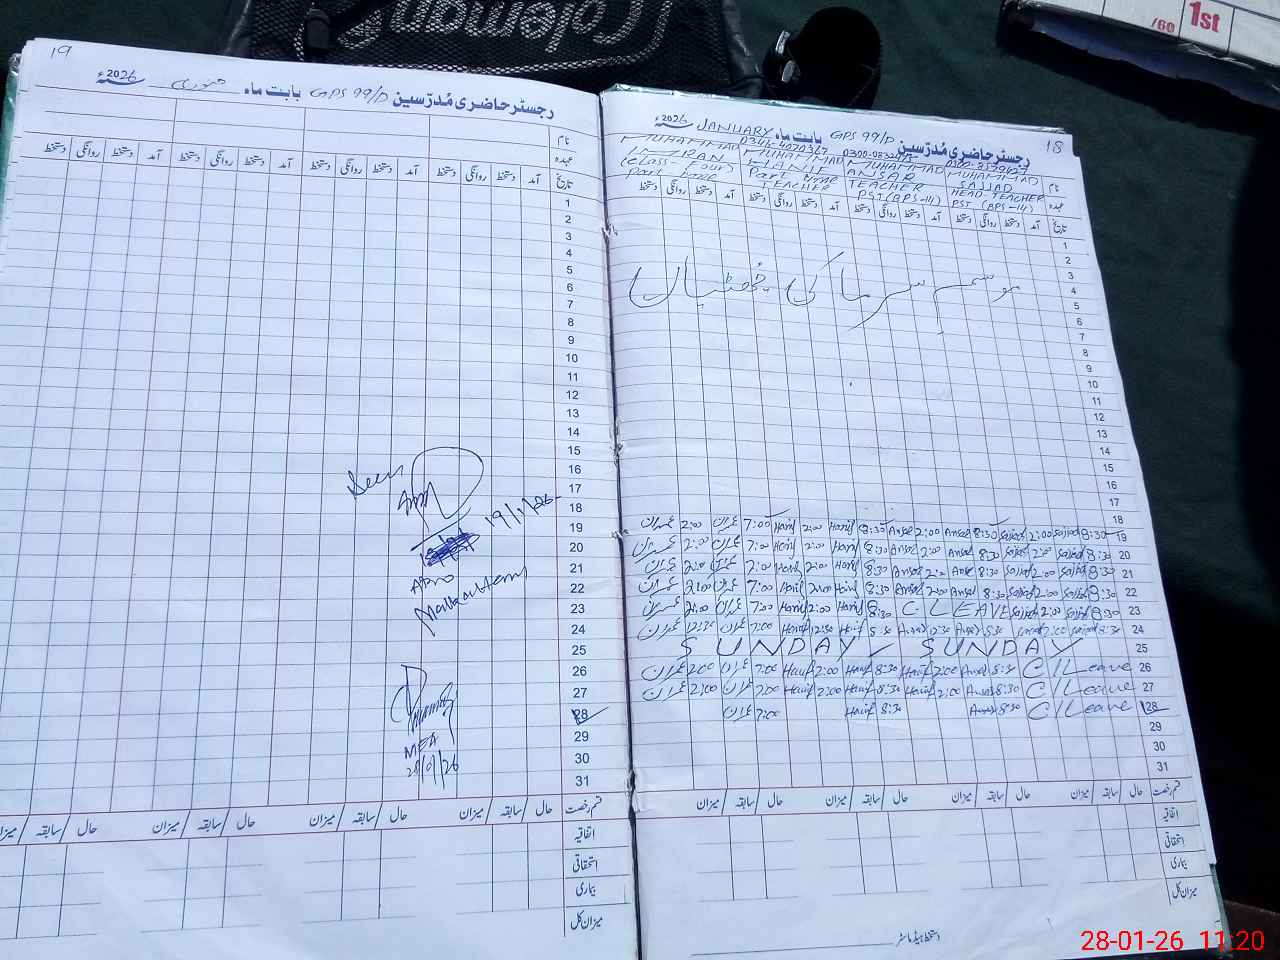 Coleman
/60 1st
19
رجسٹر حاضری مُدرّسین GPS 99/D بابت ماہ جنوری 2026ء
نام
عہدہ
تاریخ آمد دستخط روانگی دستخط آمد دستخط روانگی دستخط آمد دستخط روانگی دستخط آمد دستخط روانگی دستخط
1
2
3
4
5
6
7
8
9
10
11
12
13
14
15
16
17
18
19
20
21
22
23
24
25
26
27
28
29
30
31
Seen
19/1/26
AEO
MEA
28/01/26
قسم رخصت حال / سابقہ / میزان حال / سابقہ / میزان حال / سابقہ / میزان حال / سابقہ / میزان
اتفاقیہ
استحقاقی
بیماری
میزان کل
18
رجسٹر حاضری مُدرّسین GPS 99/D بابت ماہ JANUARY 2026ء
نام MUHAMMAD SAJJAD MUHAMMAD ANSAR MUHAMMAD HANIF MUHAMMAD IMRAN
عہدہ HEAD-TEACHER PST (BPS-14) TEACHER PST (BPS-14) Part Time TEACHER (Class-four) Part time
تاریخ آمد دستخط روانگی دستخط آمد دستخط روانگی دستخط آمد دستخط روانگی دستخط آمد دستخط روانگی دستخط
1
2
3
4
5
موسم سرما کی چھٹیاں
6
7
8
9
10
11
12
13
14
15
16
17
18
19 8:30 Sajjad 2:00 Sajjad 8:30 Ansar 2:00 Ansar 8:30 Hanif 2:00 Hanif 7:00 عمران 2:00 عمران
20 8:30 Sajjad 2:00 Sajjad 8:30 Ansar 2:00 Ansar 8:30 Hanif 2:00 Hanif 7:00 عمران 2:00 عمران
21 8:30 Sajjad 2:00 Sajjad 8:30 Ansar 2:00 Ansar 8:30 Hanif 2:00 Hanif 7:00 عمران 2:00 عمران
22 8:30 Sajjad 2:00 Sajjad 8:30 Ansar 2:00 Ansar 8:30 Hanif 2:00 Hanif 7:00 عمران 2:00 عمران
23 8:30 Sajjad 2:00 Sajjad C LEAVE 8:30 Hanif 2:00 Hanif 7:00 عمران 2:00 عمران
24 8:30 Sajjad Sajjad 8:30 Ansar 12:30 Ansar 8:30 Hanif 12:30 Hanif 7:00 عمران 12:30 عمران
25 SUNDAY / SUNDAY
26 C/Leave 8:30 Ansar 2:00 Hanif 8:30 Hanif 2:00 Hanif 7:00 عمران 2:00 عمران
27 C/Leave 8:30 Ansar 2:00 Hanif 8:30 Hanif 2:00 Hanif 7:00 عمران 2:00 عمران
28 C/Leave 8:30 Ansar 8:30 Hanif 7:00 عمران
29
30
31
قسم رخصت حال / سابقہ / میزان حال / سابقہ / میزان حال / سابقہ / میزان حال / سابقہ / میزان
اتفاقیہ
استحقاقی
بیماری
میزان کل
دستخط ہیڈ ماسٹر
28-01-26 11:20